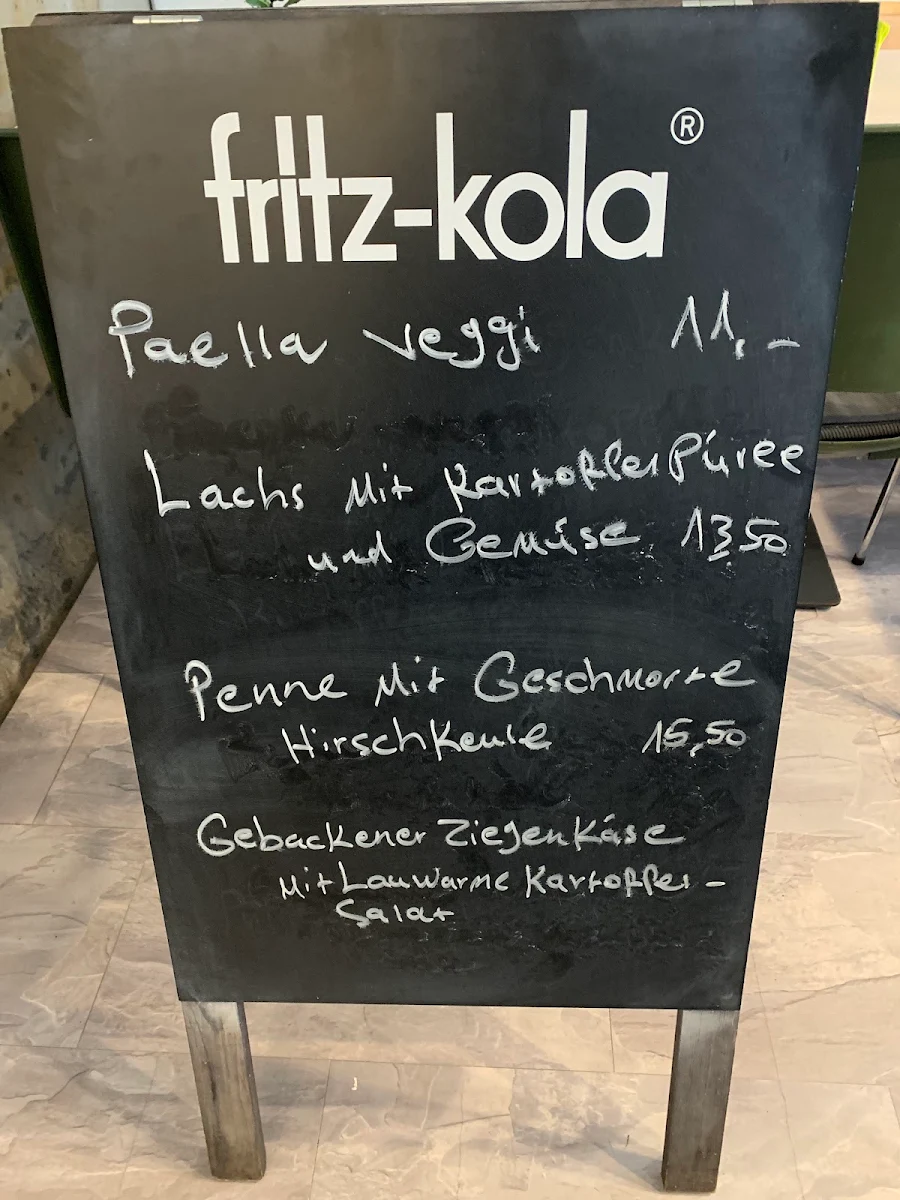 fritz-kola®
Paella veggi 11,-
Lachs mit Kartoffelpüree
und Gemüse 13,50
Penne mit Geschmorte
Hirschkeule 15,50
Gebackener Ziegenkäse
mit Lauwarme Kartoffel-
Salat